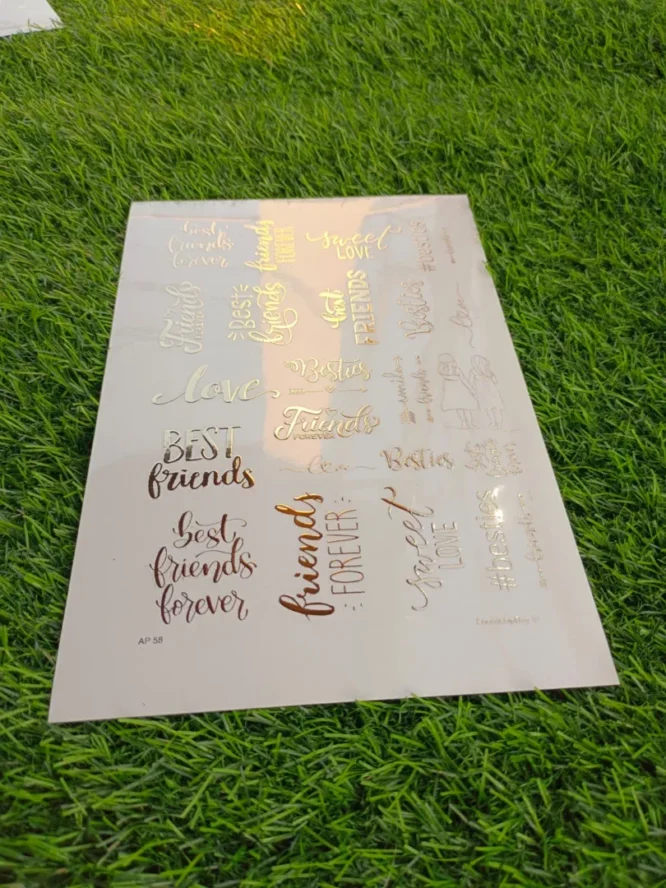 best
friends
forever
friends
FOREVER
sweet
LOVE
#besties
Friends
FOREVER
Best
friends
best
FRIENDS
Besties
love
love
Besties
Friends
FOREVER
BEST
friends
love
Besties
best
friends
forever
friends
FOREVER
sweet
LOVE
#besties
AP 58